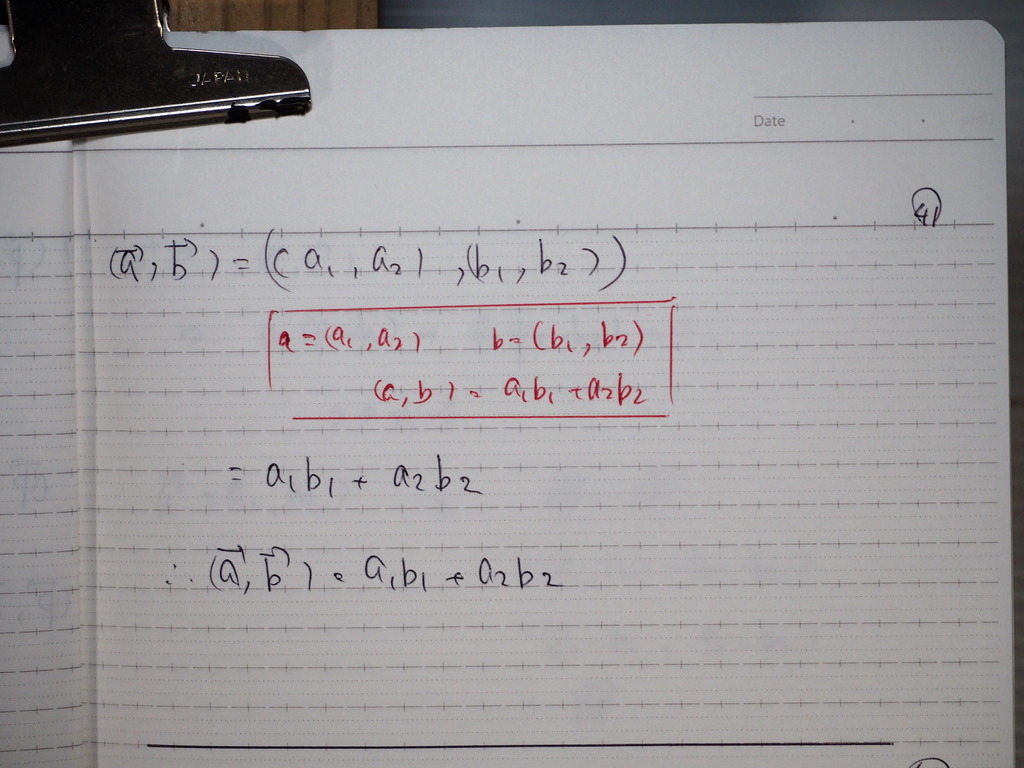 JAPAN
Date
41
(a⃗, b⃗) = ((a₁, a₂), (b₁, b₂))
a = (a₁, a₂) b = (b₁, b₂)
(a, b) = a₁b₁ + a₂b₂
= a₁b₁ + a₂b₂
∴ (a⃗, b⃗) = a₁b₁ + a₂b₂